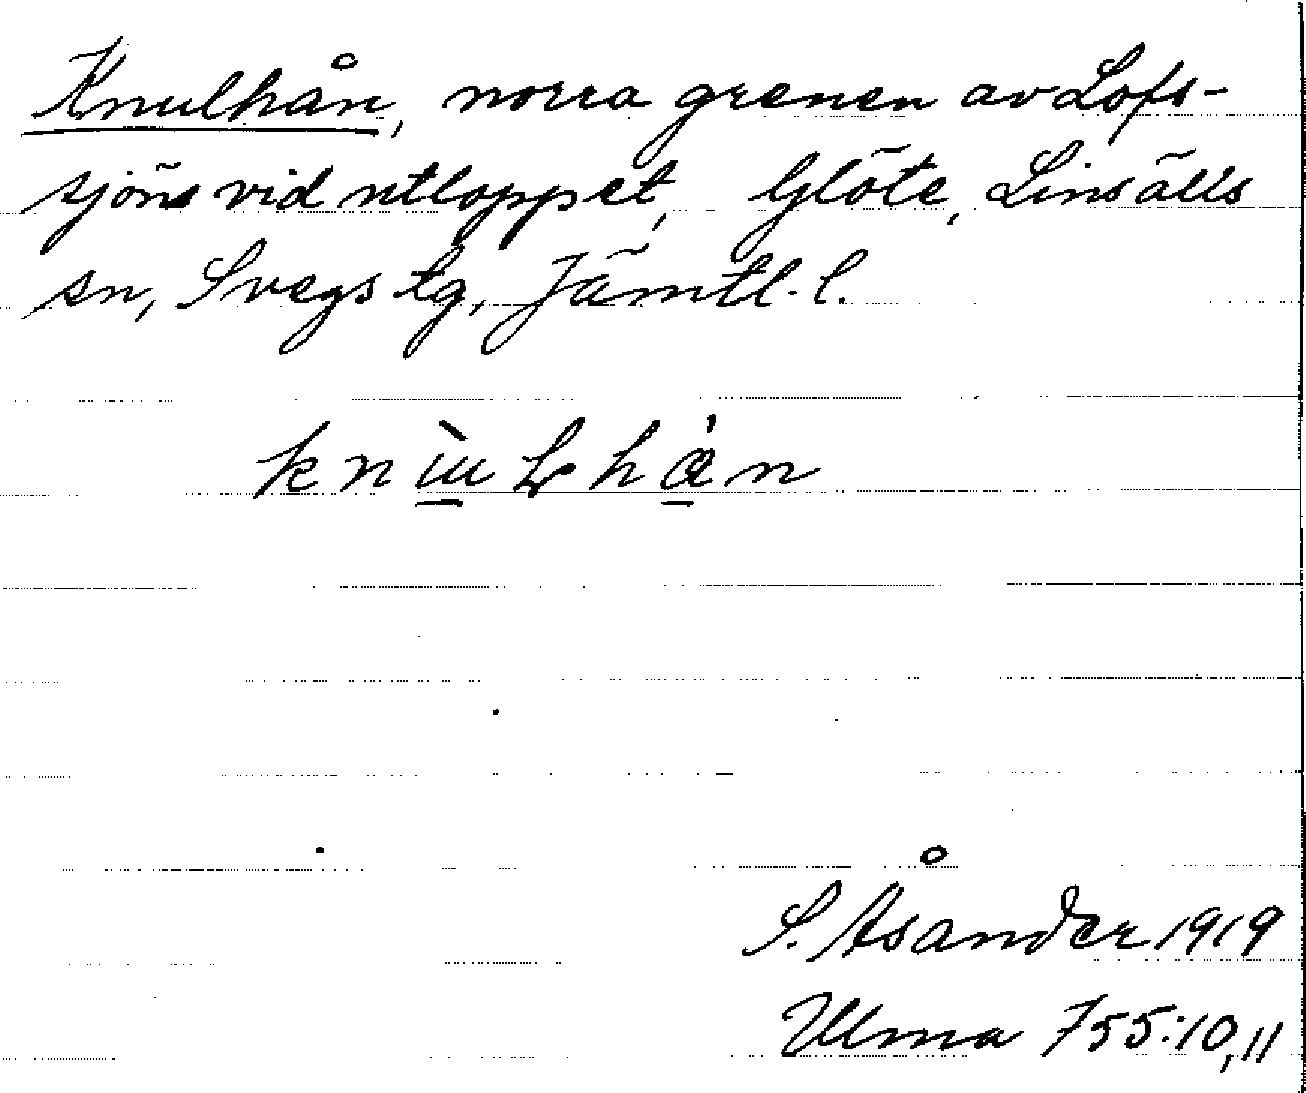 Knulhån, norra grenen av Lofs-
sjöns vid utloppet, Glöte, Linsälls
sn, Svegs tg, Jämtl. l.
S. Åsander 1919
Ulma 755:10,11